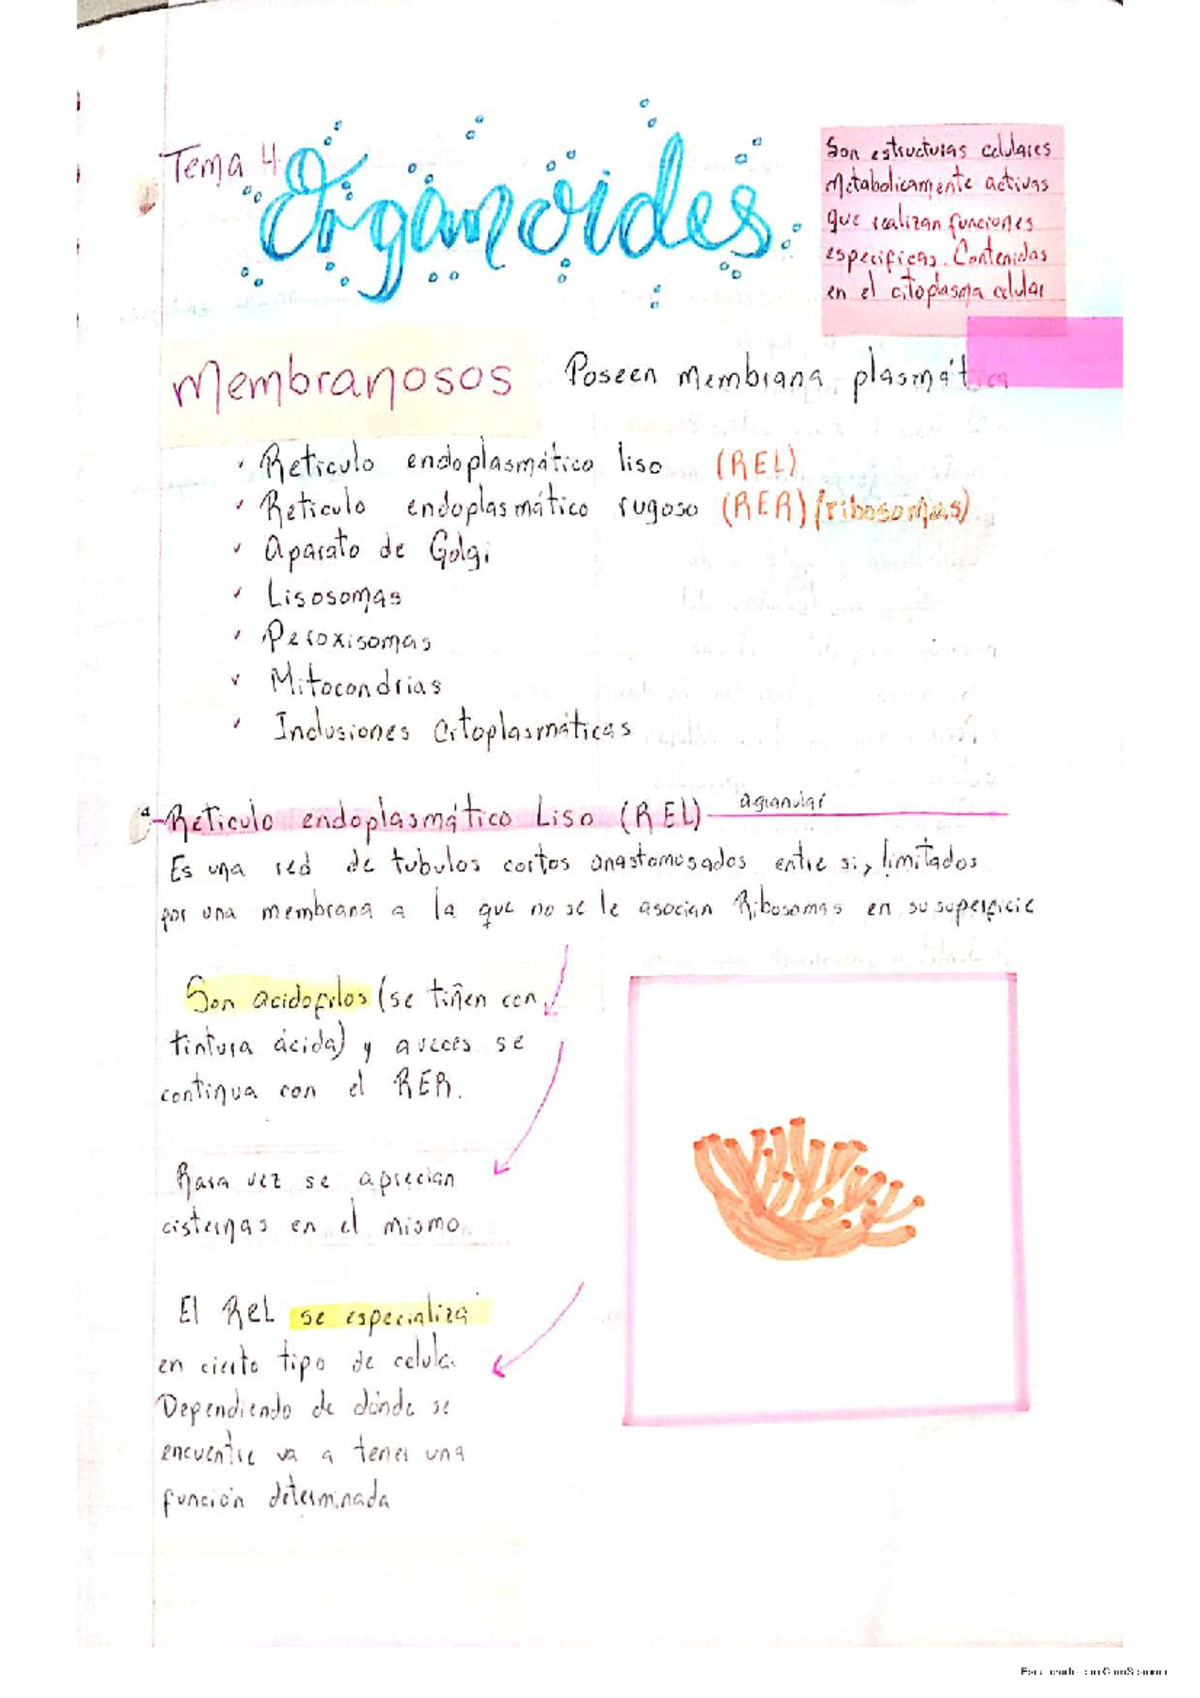 Tema 4.
Organoides
Son estructuras celulares
Metabolicamente activas
que realizan funciones
especificas. Contenidas
en el citoplasma celular
Membranosos
Poseen membrana plasmática
Reticulo endoplasmático liso (REL)
Reticulo endoplasmático rugoso (RER) (ribosomas)
Aparato de Golgi
Lisosomas
Peroxisomas
Mitocondrias
Inclusiones Citoplasmáticas
Reticulo endoplasmático Liso (REL) agranular
Es una red de tubulos cortos anastomosados entre si, limitados
por una membrana a la que no se le asocian Ribosomas en su superficie
Son acidofilos (se tiñen con
tintura ácida) y a veces se
continua con el RER.
Rara vez se aprecian
cisternas en el mismo.
El REL se especializa
en cierto tipo de celula.
Dependiendo de dónde se
encuentre va a tener una
función determinada